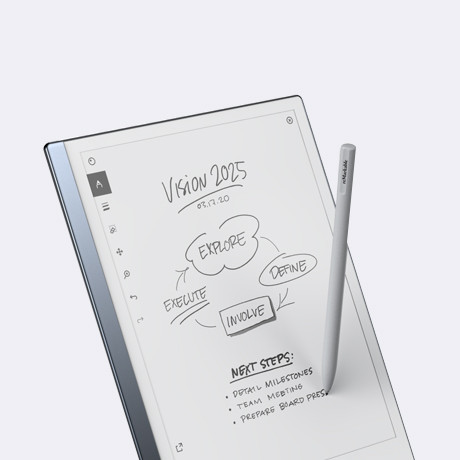 VISION 2025
03.17.20
EXPLORE
DEFINE
INVOLVE
EXECUTE
NEXT STEPS:
• DETAIL MILESTONES
• TEAM MEETING
• PREPARE BOARD PRES.
reMarkable